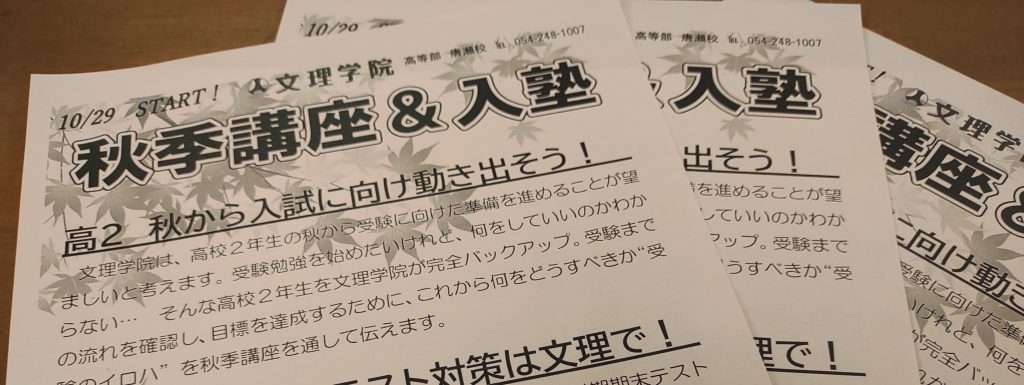 10/29 START! 文理学院 高等部 唐瀬校 ℡ 054-248-1007
秋季講座&入塾
高2 秋から入試に向け動き出そう!
文理学院は、高校2年生の秋から受験に向けた準備を進めることが望
ましいと考えます。受験勉強を始めたいけれど、何をしていいのかわか
らない… そんな高校2年生を文理学院が完全バックアップ。受験まで
の流れを確認し、目標を達成するために、これから何をどうすべきか“受
験のイロハ”を秋季講座を通して伝えます。
テスト対策は文理で!
期期末テスト
10/29
高等部 唐瀬校 ℡ 054-248-1007
&入塾
出そう!
を進めることが望
していいのかわか
ップ。受験まで
うすべきか“受
理で!
文理学
講座&
に向け動き
受験に向けた
いけれど、何を
が完全バック